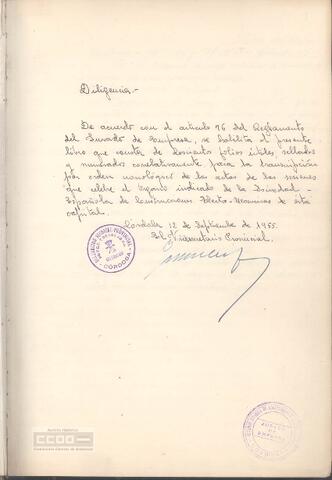 Diligencia.-
De acuerdo con el articulo 76 del Reglamento
del Jurado de Empresa, se habilita el presente
libro que consta de doscientos folios útiles, sellados
y numerados correlativamente para la transcripción
por orden cronologico de las actas de las sesiones
que celebre el Organo indicado de la Sociedad
Española de Construcciones Electro-Mecanicas de esta
capital.
Córdoba 12 de Septiembre de 1955.
El Vicesecretario Provincial,
CORDOBA
JURADO
DE
EMPRESA
Archivo Histórico
CCOO
Comisiones Obreras de Andalucía